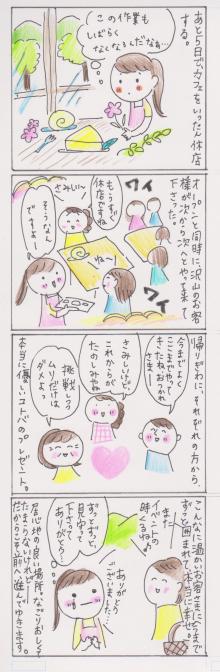 あと5日で、カフェをいったん休店
する。
この作業も
しばらく
なくなるんだなぁ…
オープンと同時に沢山のお客
様が次から次へとやって来て
下さった。
ワイ
ワイ
もうすぐ
休店ですね
さみしい〜
そうなん
ですよ〜
ねー
帰りぎわに、それぞれの方から、
今までよく
ここまでやって
きたねおつかれ
さま〜
さみしいけど
これからが
たのしみやね
挑戦しても
ムリだけは
ダメよっ
本当に優しいコトバのプレゼント。
こんなに温かいお客さまに今まで
ずっと囲まれて、本当に幸せ。
また
イベントの
時くるね♪
ずっとずっと、
見守って
下さって
ありがとう…
ありがとう
ございました…
居心地の良い場所、なごりおしくて
たまらないけれど…
だからこそ、前へ進んでゆきます。